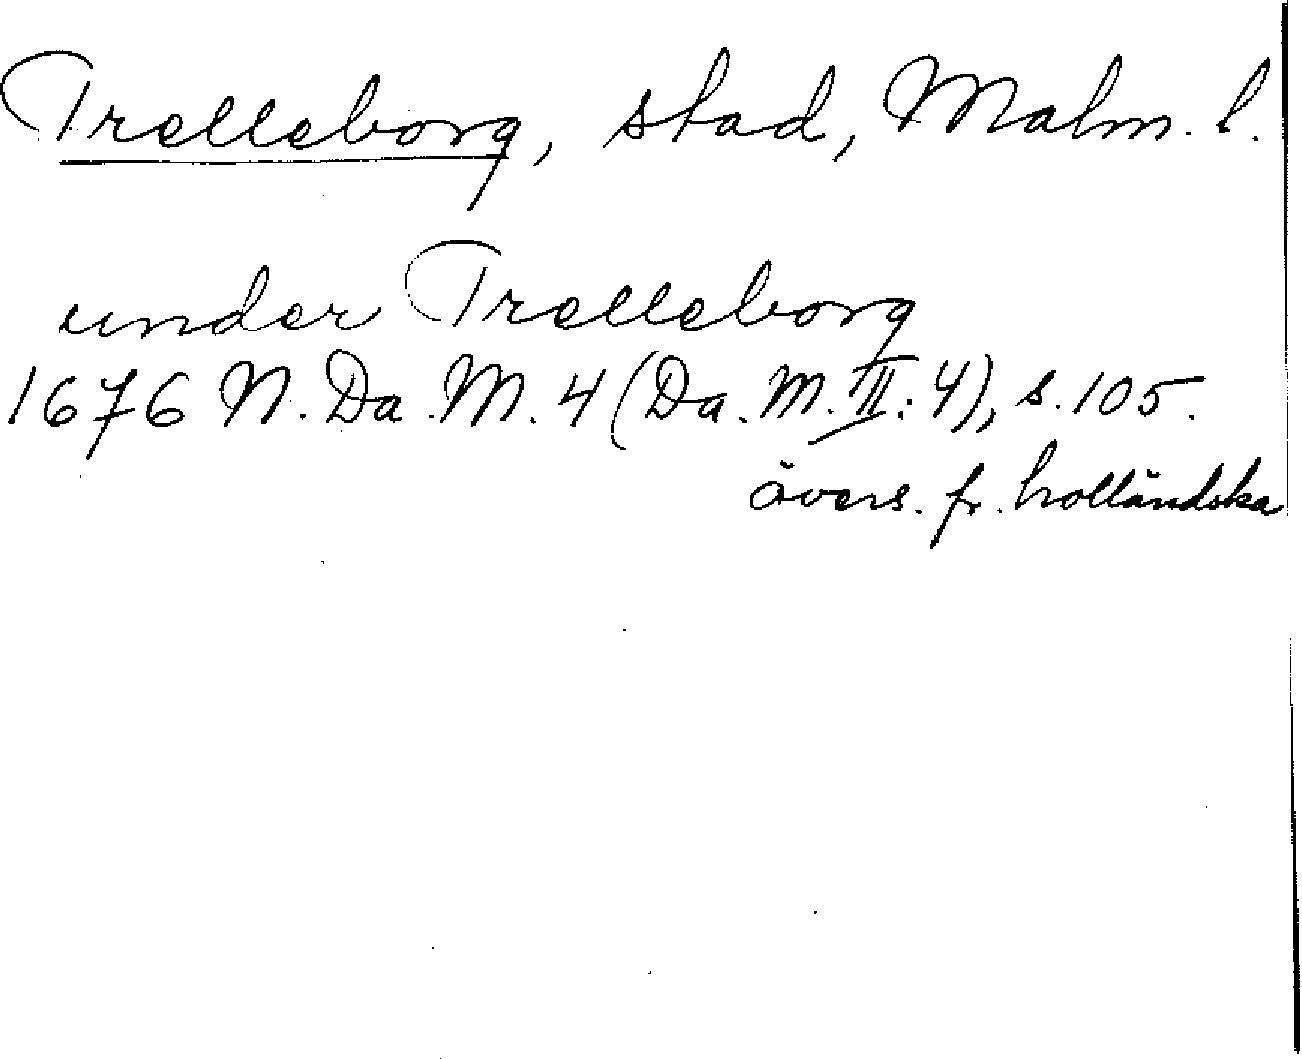 Trelleborg, stad, Malm. l.
under Trelleborg
1676 N. Da. M. 4 (Da. M. II: 4), s. 105.
övers. fr. holländska